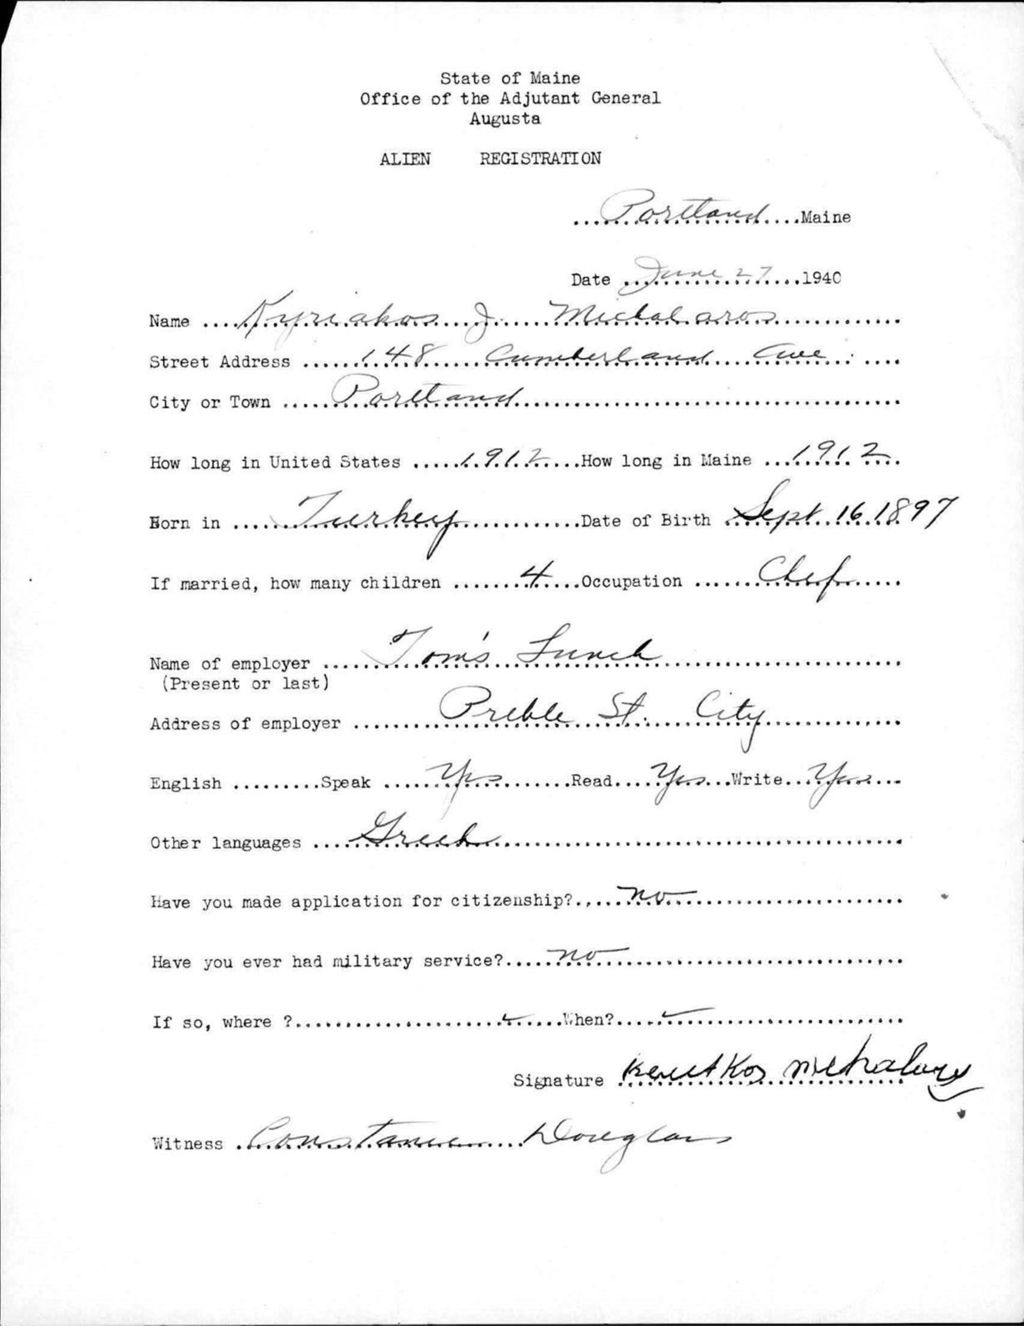 State of Maine
Office of the Adjutant General
Augusta
ALIEN REGISTRATION
Portland Maine
Date June 27 1940
Name Kyriakos J. Michalaros
Street Address 148 Cumberland Ave
City or Town Portland
How long in United States 1912 How long in Maine 1912
Born in Turkey Date of Birth Sept. 16, 1897
If married, how many children 4 Occupation Chef
Name of employer Tom's Lunch
(Present or last)
Address of employer Preble St. City
English Speak Yes Read Yes Write Yes
Other languages Greek
Have you made application for citizenship? no
Have you ever had military service? no
If so, where ? When?
Signature
Witness Constance Douglas